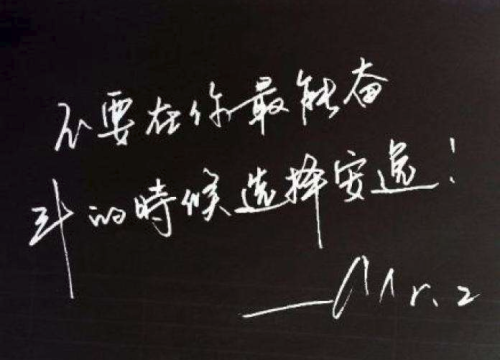 不要在你最能奋
斗的時候选择安逸!
——Mr. z